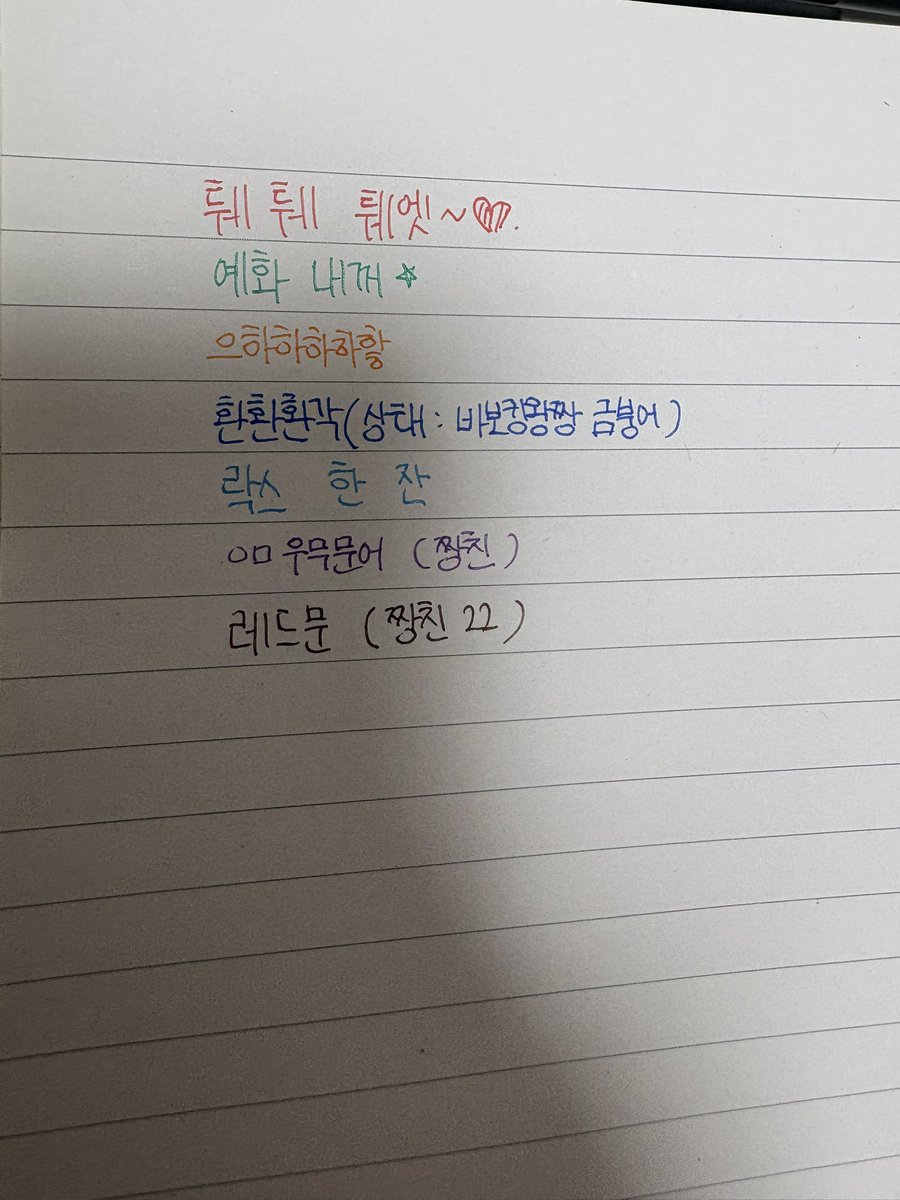 퉤 퉤 퉤엣~♡.
예화 내꺼 ☆
으하하하하핳
환환환각(상태 : 바보킹왕짱 금붕어)
락스 한 잔
ㅇㅁ우무문어 (짱친)
레드문 (짱친 22)